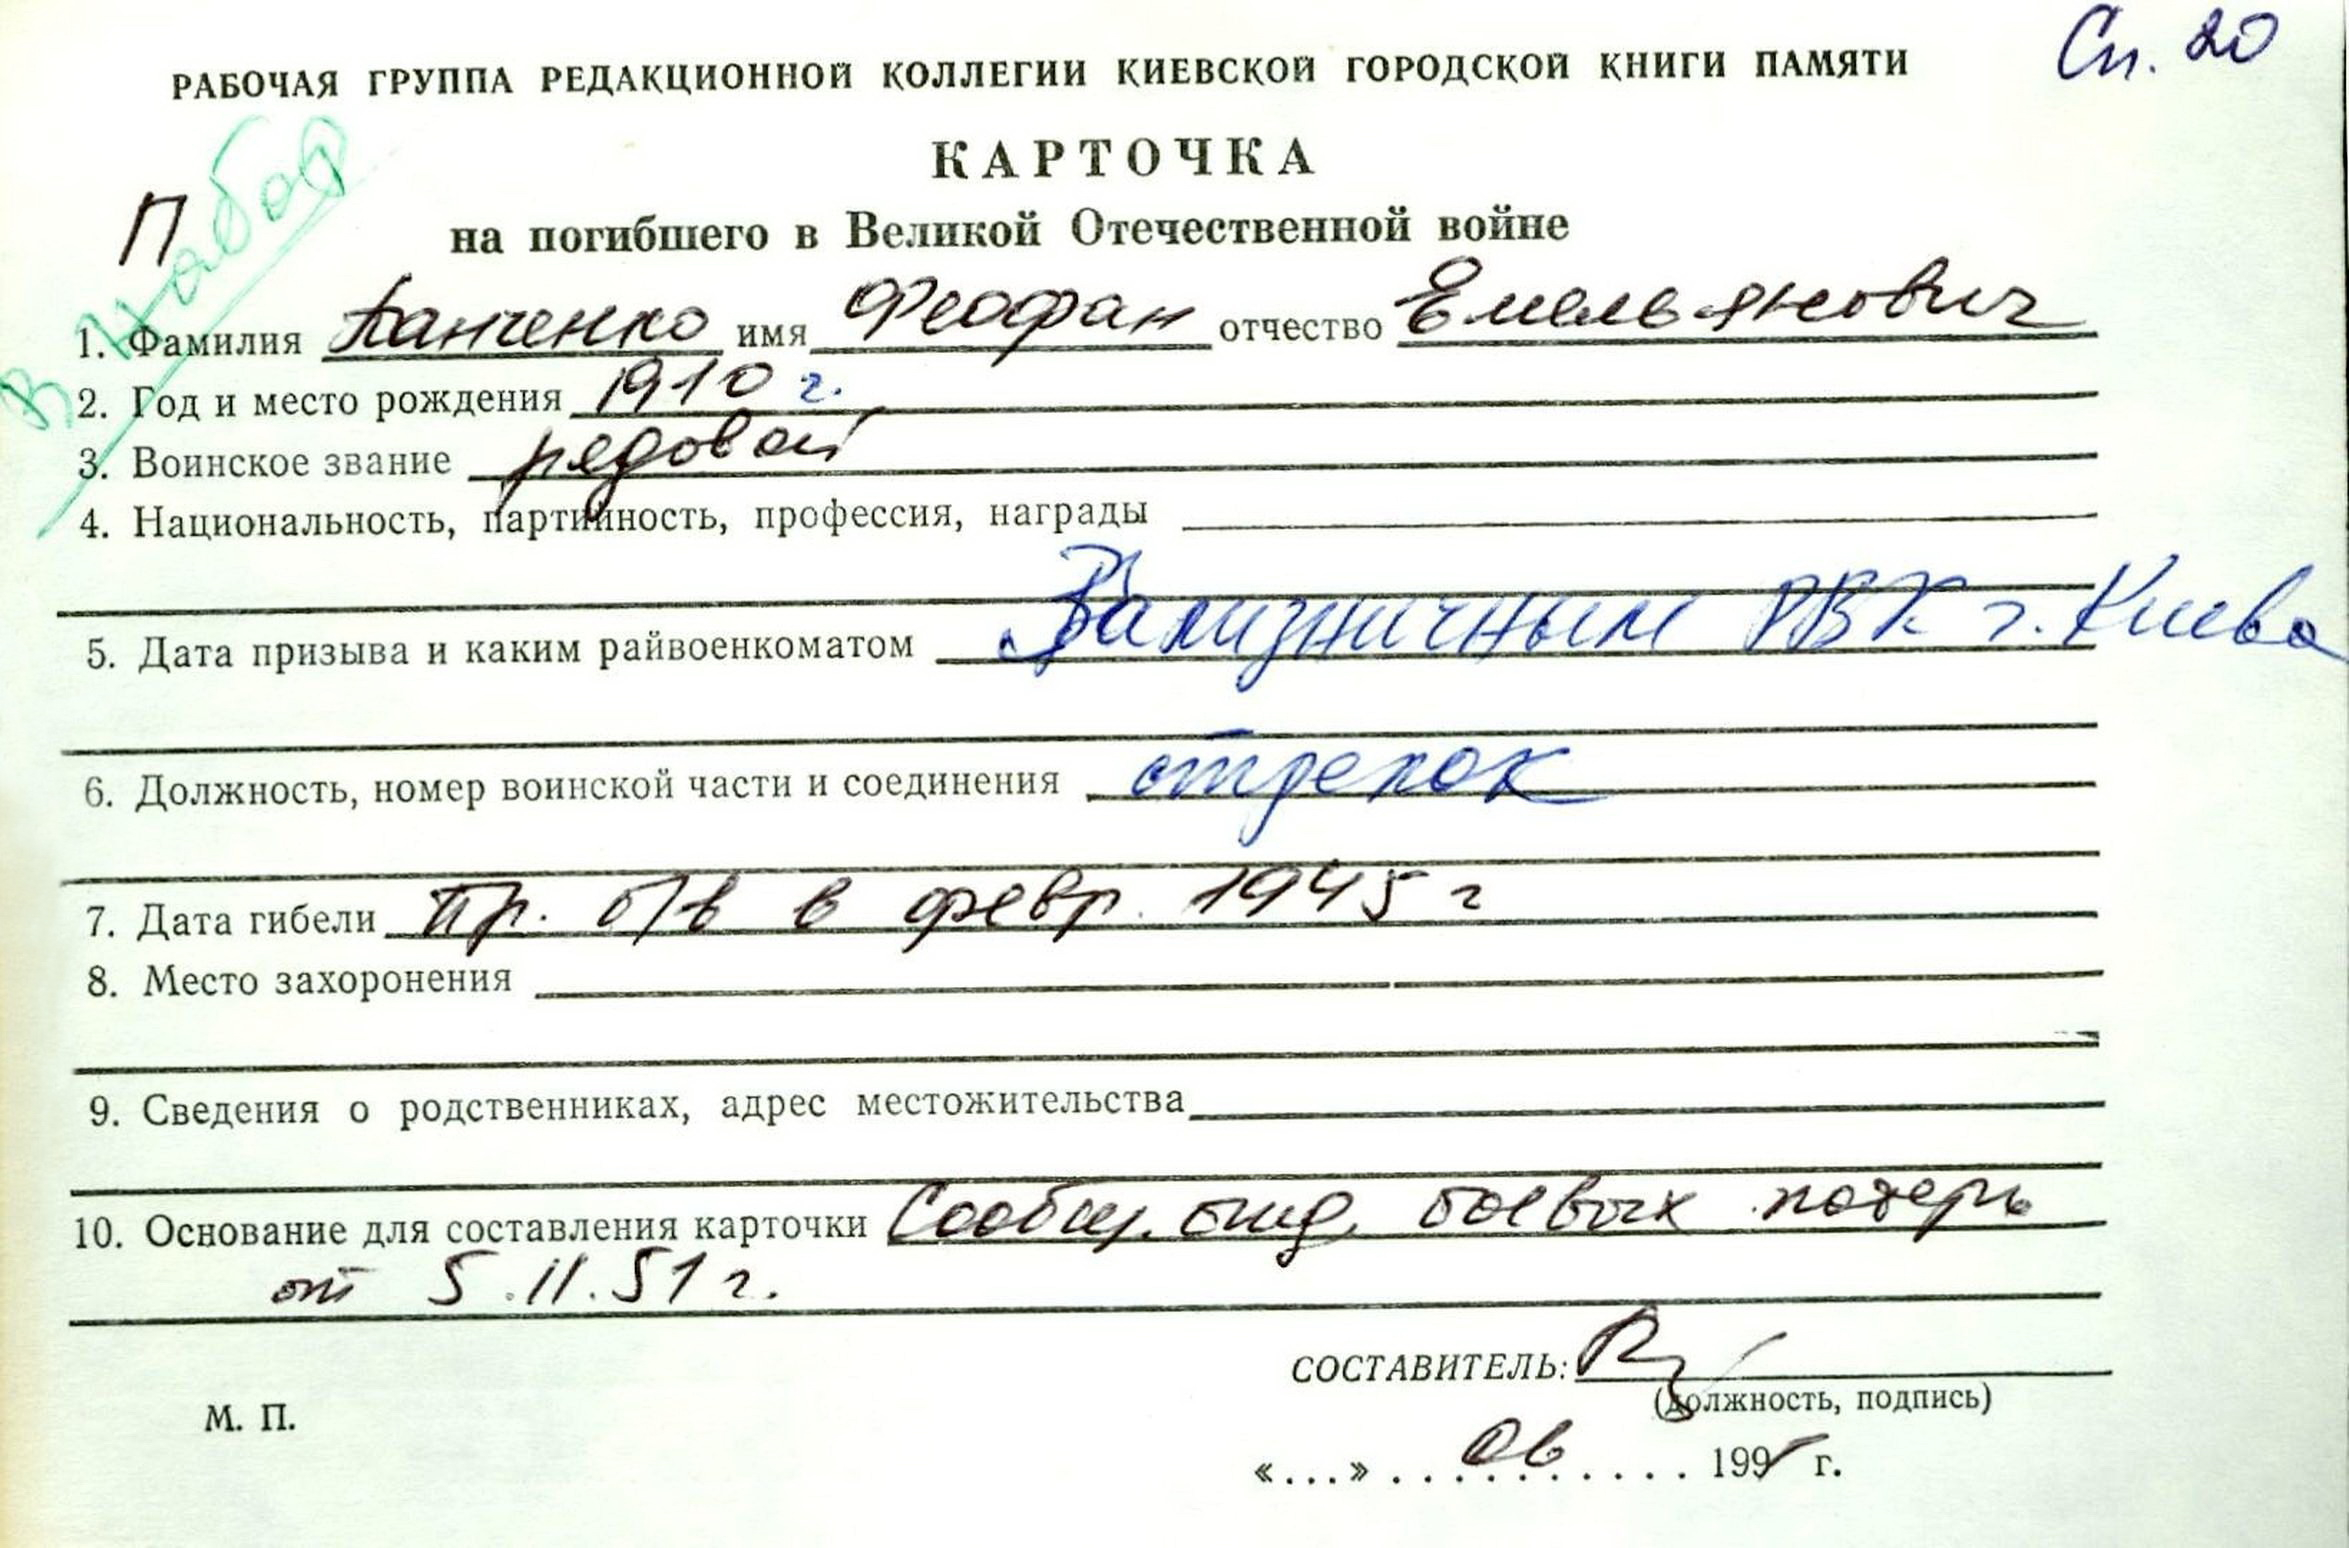 Сп. 20
РАБОЧАЯ ГРУППА РЕДАКЦИОННОЙ КОЛЛЕГИИ КИЕВСКОЙ ГОРОДСКОЙ КНИГИ ПАМЯТИ
КАРТОЧКА
П
В набор
на погибшего в Великой Отечественной войне
1. Фамилия Панченко имя Феофан отчество Емельянович
2. Год и место рождения 1910 г.
3. Воинское звание рядовой
4. Национальность, партийность, профессия, награды
5. Дата призыва и каким райвоенкоматом Зализничным РВК г. Киева
6. Должность, номер воинской части и соединения стрелок
7. Дата гибели Пр. б/в в февр. 1945 г
8. Место захоронения
9. Сведения о родственниках, адрес местожительства
10. Основание для составления карточки Сообщ. боевых потерь
от 5.11.51 г.
СОСТАВИТЕЛЬ:
(должность, подпись)
М. П.
«...» . . . 06 . . . . . . 199 г.